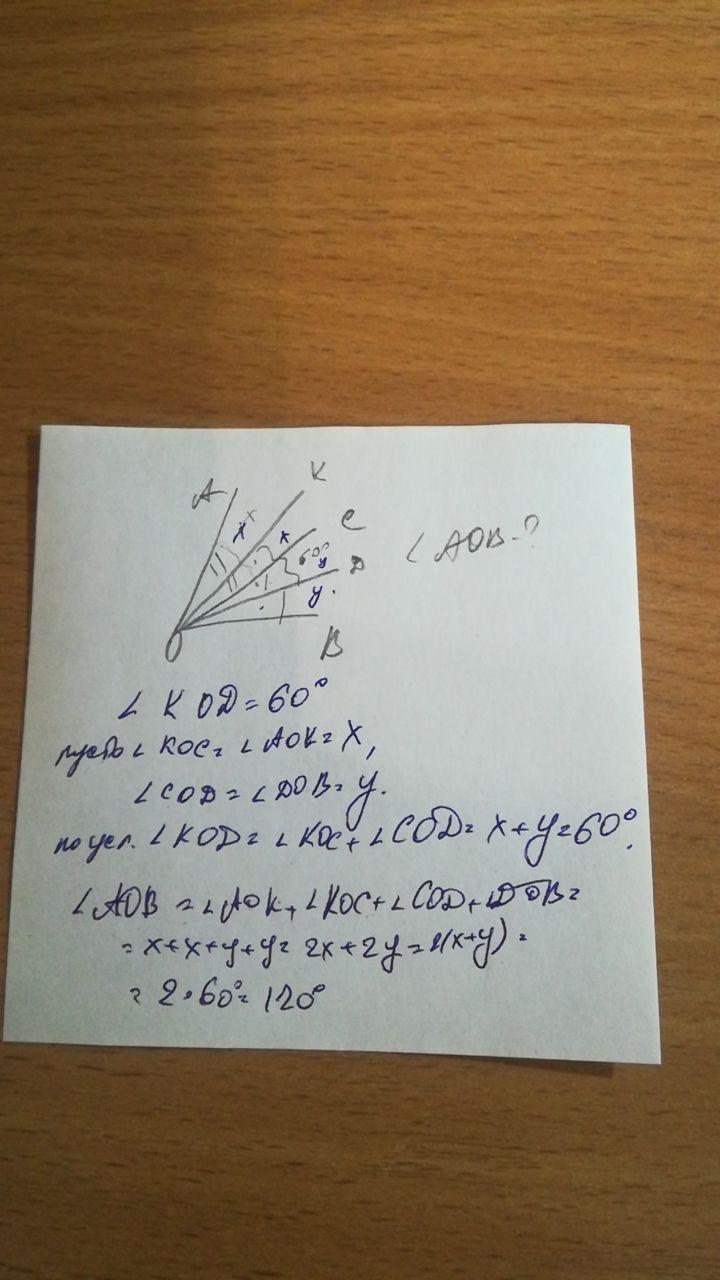 K
A
x
x
x
C
60°
y
D
∠AOB-?
y.
O
B
∠KOD=60°
пусть ∠KOC=∠AOK=x,
∠COD=∠DOB=y.
по усл. ∠KOD=∠KOC+∠COD=x+y=60°.
∠AOB=∠AOK+∠KOC+∠COD+∠DOB=
=x+x+y+y=2x+2y=2(x+y)=
=2·60°=120°